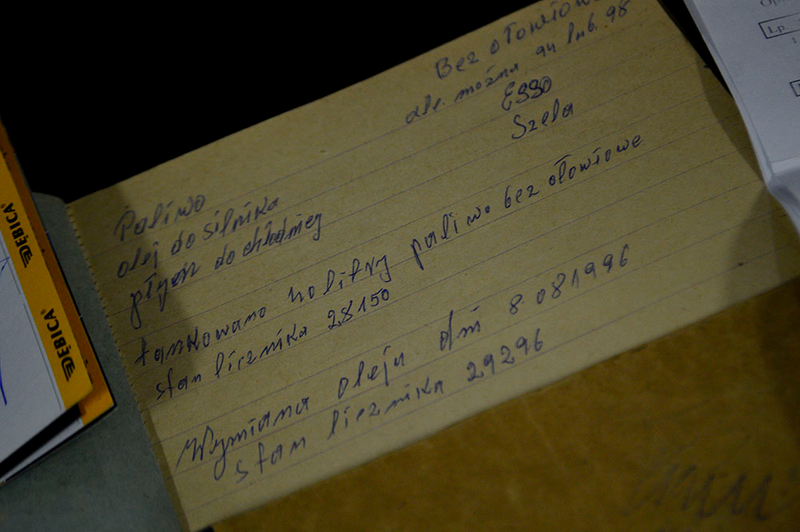 Bez ołowiowe
ale. można 94 lub. 98
ESSO
Szela
Paliwo
olej do silnika
płyn do chłodnicy
tankowano 40 litry paliwo bez ołowiowe
stan licznika 28150
Wymiana oleju dnı 8 081996
stan licznika 29296
DĘBICA
DĘBICA
Op
Lp.
1